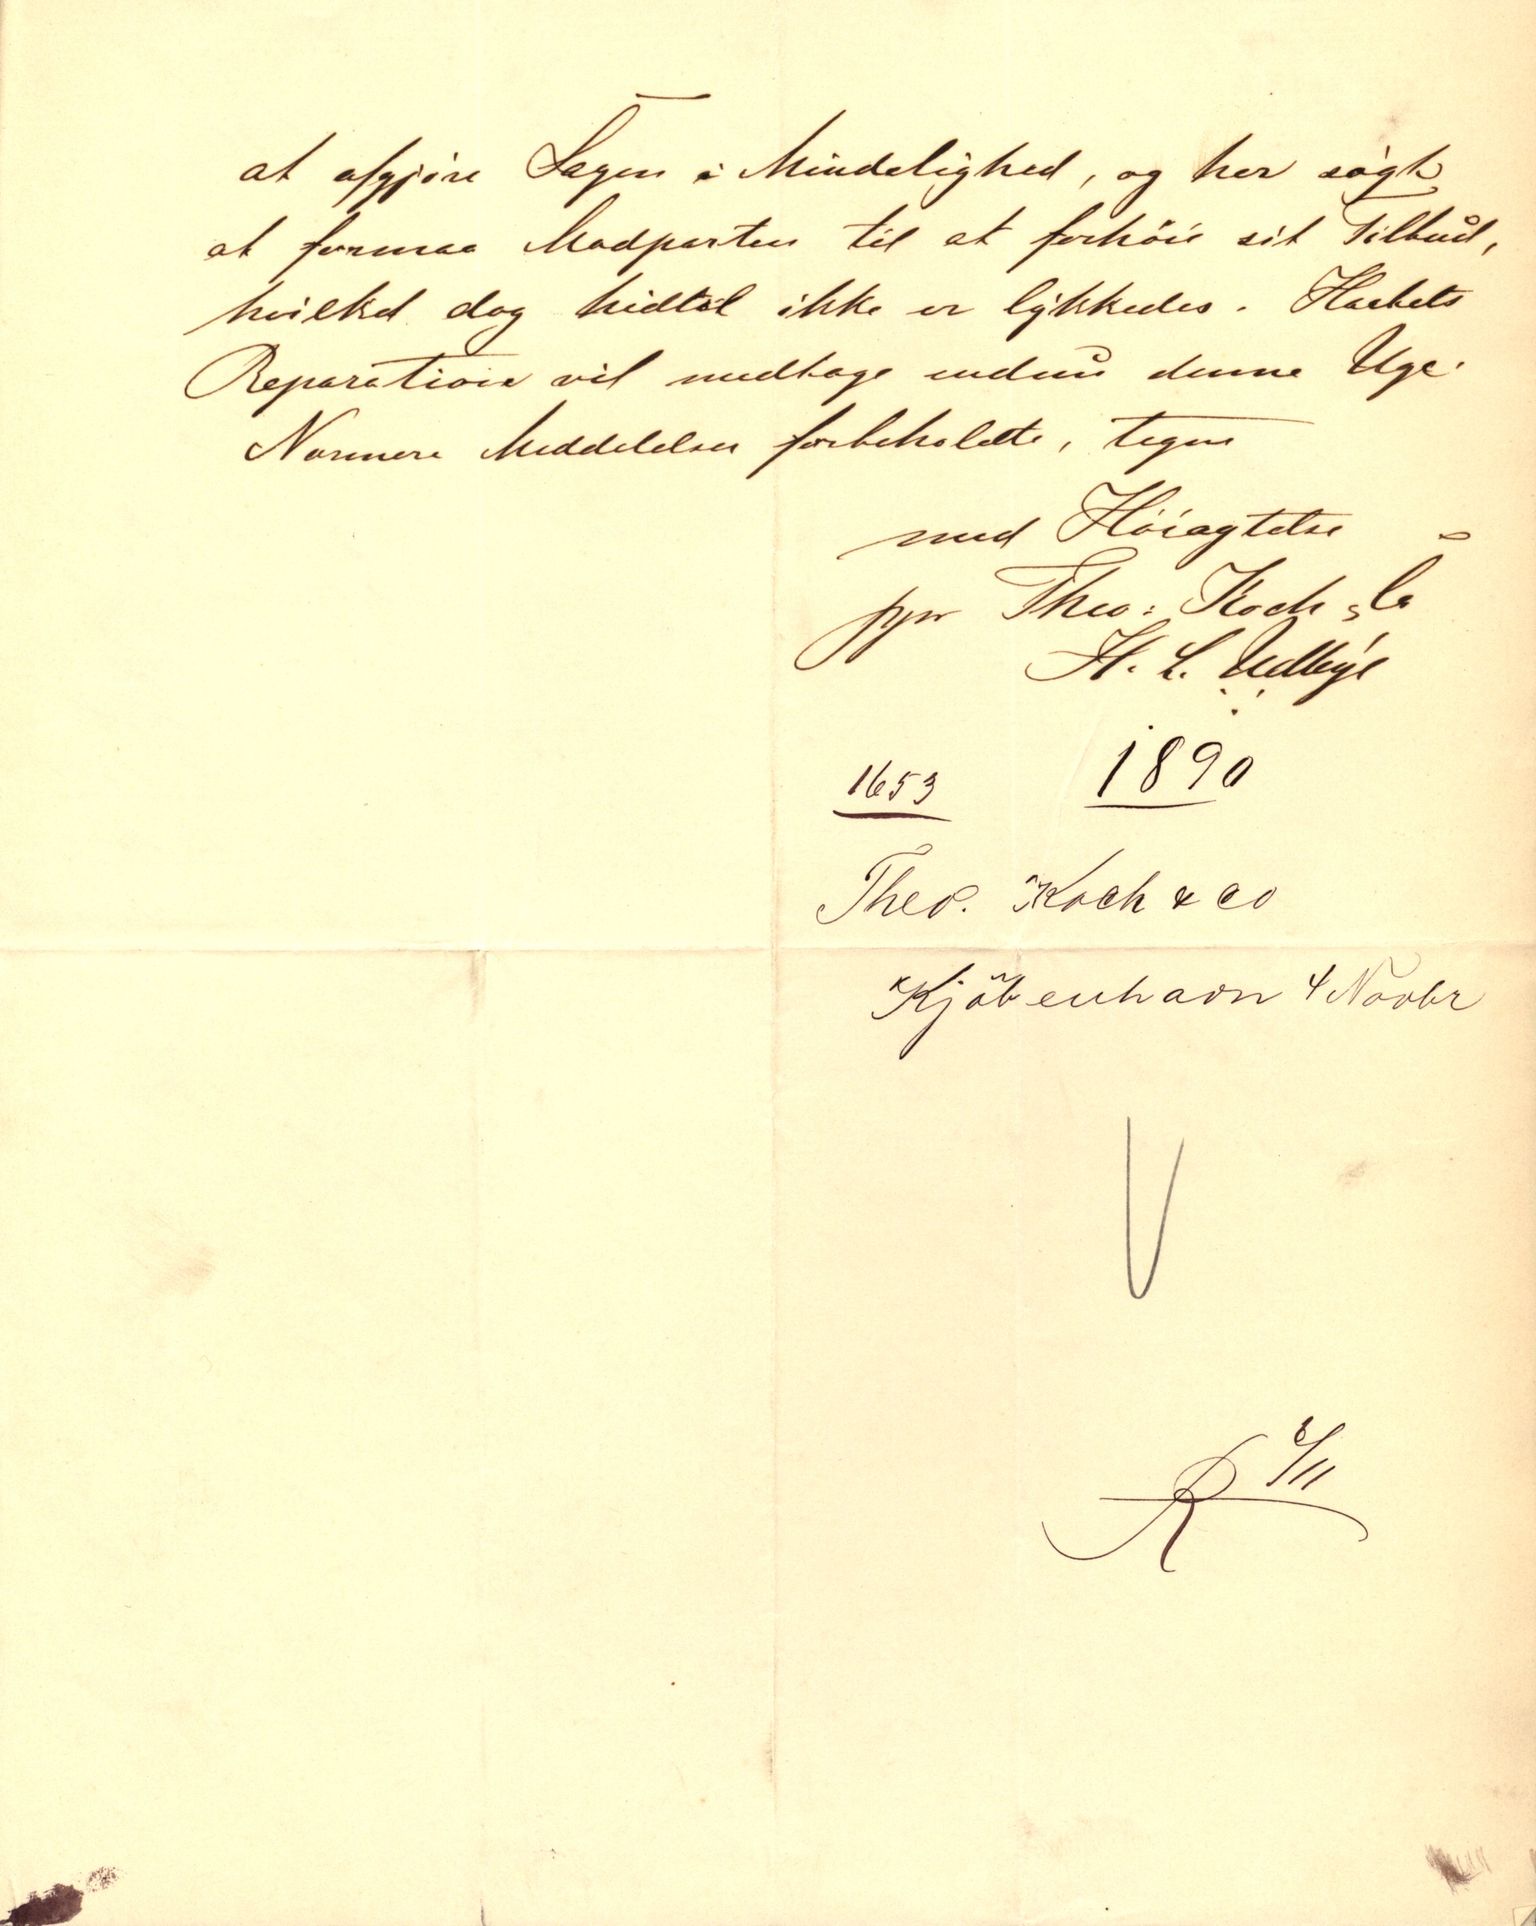 at afgjøre Sagen i Mindelighed, og har søgt
at formaa Modparten til at forhöie sit Tilbud,
hvilket dog hidtil ikke er lykkedes. Skibets
Reparation vil medtage endnu denne Uge.
Nærmere Meddelelser forbeholdte, tegner
med Höiagtelse
ppr Theo: Koch & Co
H. L. Udbye
1653 1890
Theo. Koch & co
Kjöbenhavn 4 Novbr
R 6/11